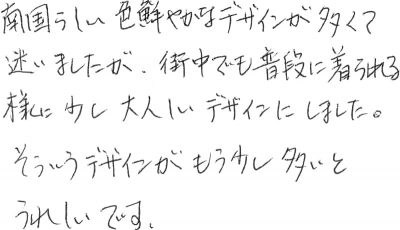 南国らしい色鮮やかなデザインが多くて
迷いましたが、街中でも普段に着られる
様に少し大人しいデザインにしました。
そういうデザインがもう少し多いと
うれしいです。